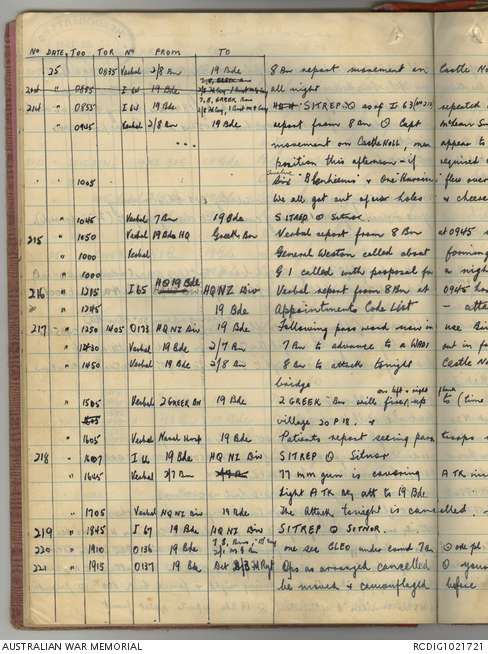 No DATE TOO TOR No FROM TO
25 0835 Verbal 2/8 Bn 19 Bde 8 Bn report movement on Castle
" 0835 I 64 19 Bde all night
" 0855 I 64 19 Bde 7, 8, GREEK Bns SITREP as of I 63 repeated
" 0945 Verbal 2/8 Bn 19 Bde report from 8 Bn Capt McLean
movement on Castle appear to
position this afternoon - if required
" 1005 Blenheims & One Hurricane flew over
We all get out of our holes & cheese
" 1045 Verbal 7 Bn 19 Bde SITREP Sitnor.
215 " 1050 Verbal 19 Bde HQ Greek Bn Verbal report from 8 Bn at 0945
" 1000 Verbal General Weston called about forming
" 1000 G 1 called with proposal for a night
216 " 1215 I 65 HQ 19 Bde HQ NZ Div Verbal report from 8 Bn at 0945
" 1245 19 Bde Appointments Code List - atta
217 " 1250 1405 0173 HQ NZ Div 19 Bde Following pass word now in use
" 1430 Verbal 19 Bde 2/7 Bn 7 Bn to advance to a WADI out in
" 1450 Verbal 19 Bde 2/8 Bn 8 Bn to attack tonight Castle
bridge on left & right flank
" 1505 Verbal 2 GREEK Bn 19 Bde 2 GREEK Bn with fixed up to (time
village 20 P 18. &
" 1605 Verbal Naval Hosp 19 Bde Patients report seeing para troops
218 " 1607 I 66 19 Bde HQ NZ Div SITREP Sitnor
" 1645 Verbal 2/7 Bn 19 Bn 77 mm gun is causing A TK
Light A TK Bty att to 19 Bde
" 1705 Verbal HQ NZ Div 19 Bde The attack tonight is cancelled.
219 " 1845 I 67 19 Bde HQ NZ Div SITREP SITNOR.
220 " 1910 0136 19 Bde 7, 8, Bns one sec CLEO under comd 7 Bn one pl
221 " 1915 0137 19 Bde Det 2/3 Fd Regt Ops as arranged cancelled your
be moved & camouflaged before
AUSTRALIAN WAR MEMORIAL RCDIG1021721